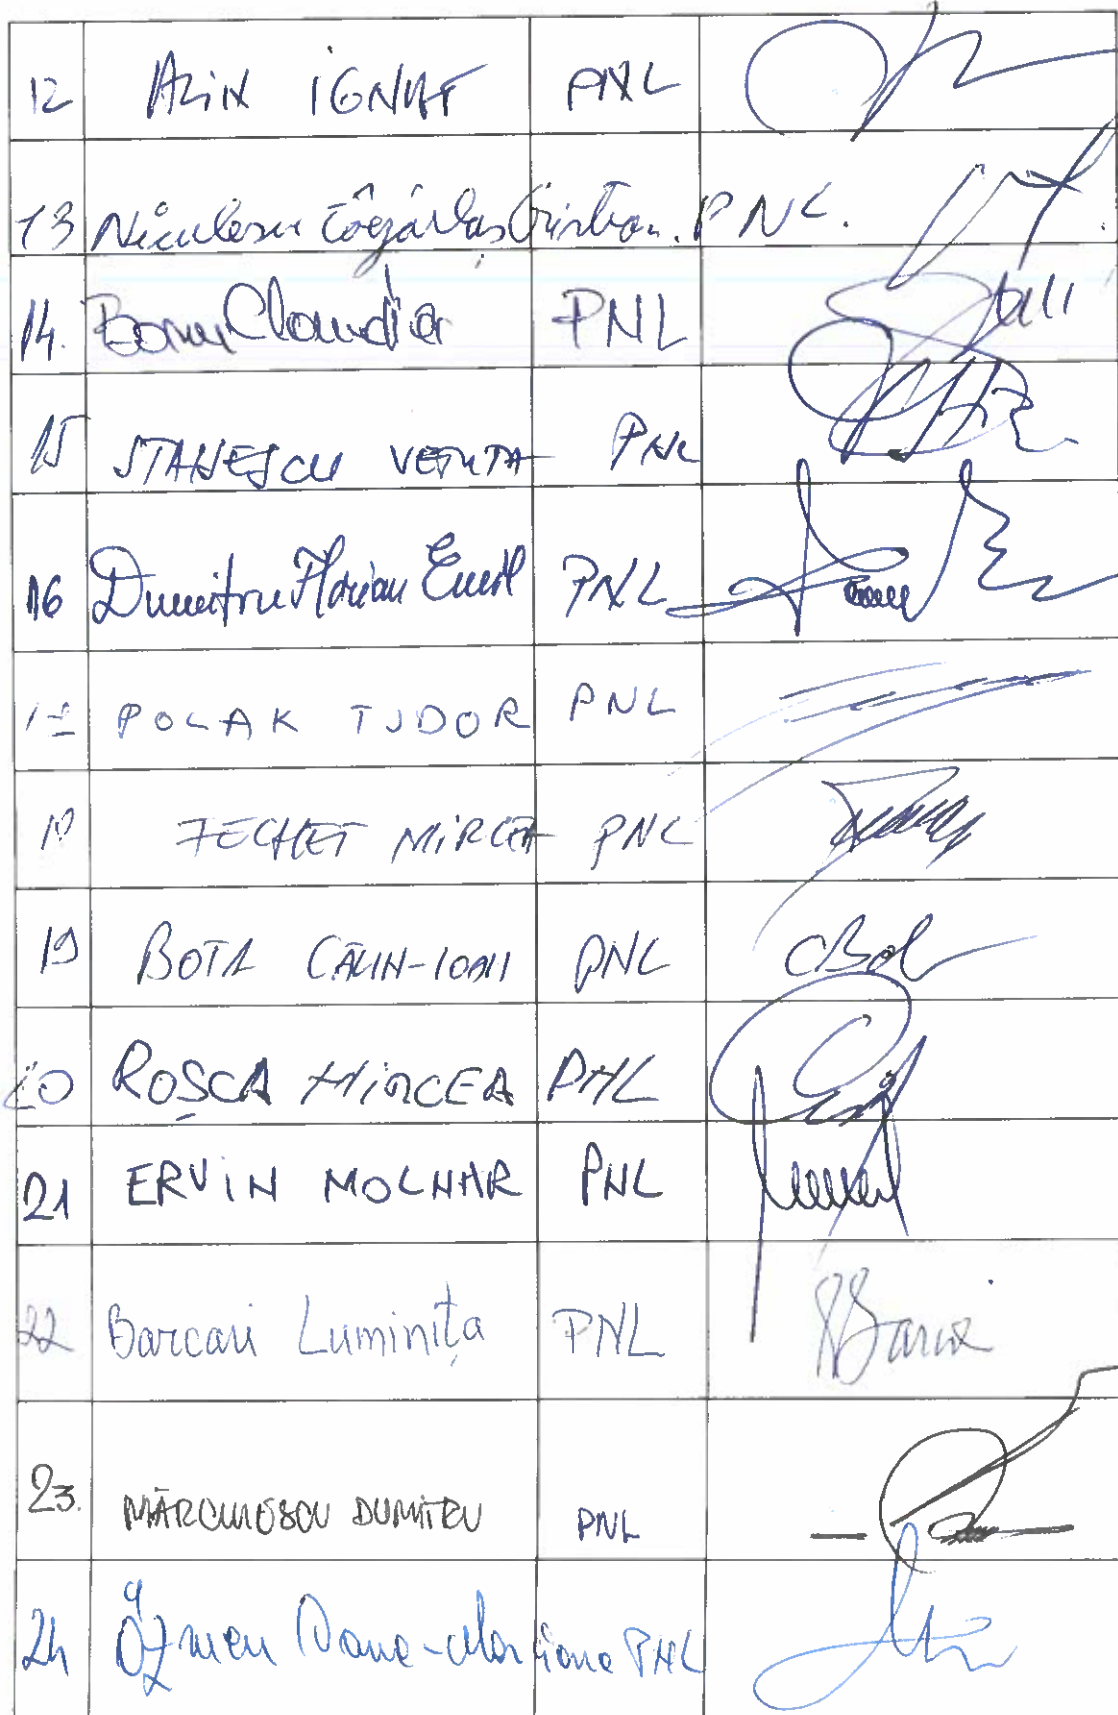 12 ALIN IGNAT PNL
13 Niculescu Țâgârlaș Cristian. PNL.
14. Boghiu Claudia PNL
15 STANESCU VETUTA PNL
16 Dumitru Florian Emil PNL
17 POLAK TUDOR PNL
18 FECHET MIRCEA PNL
19 BOTA CĂLIN-IOAN PNL CBota
20 ROȘCA MIRCEA PNL
21 ERVIN MOLNAR PNL
22 Barcari Luminița PNL
23. MĂRCULESCU DUMITRU PNL
24 Özmen Oana-Marciana PNL